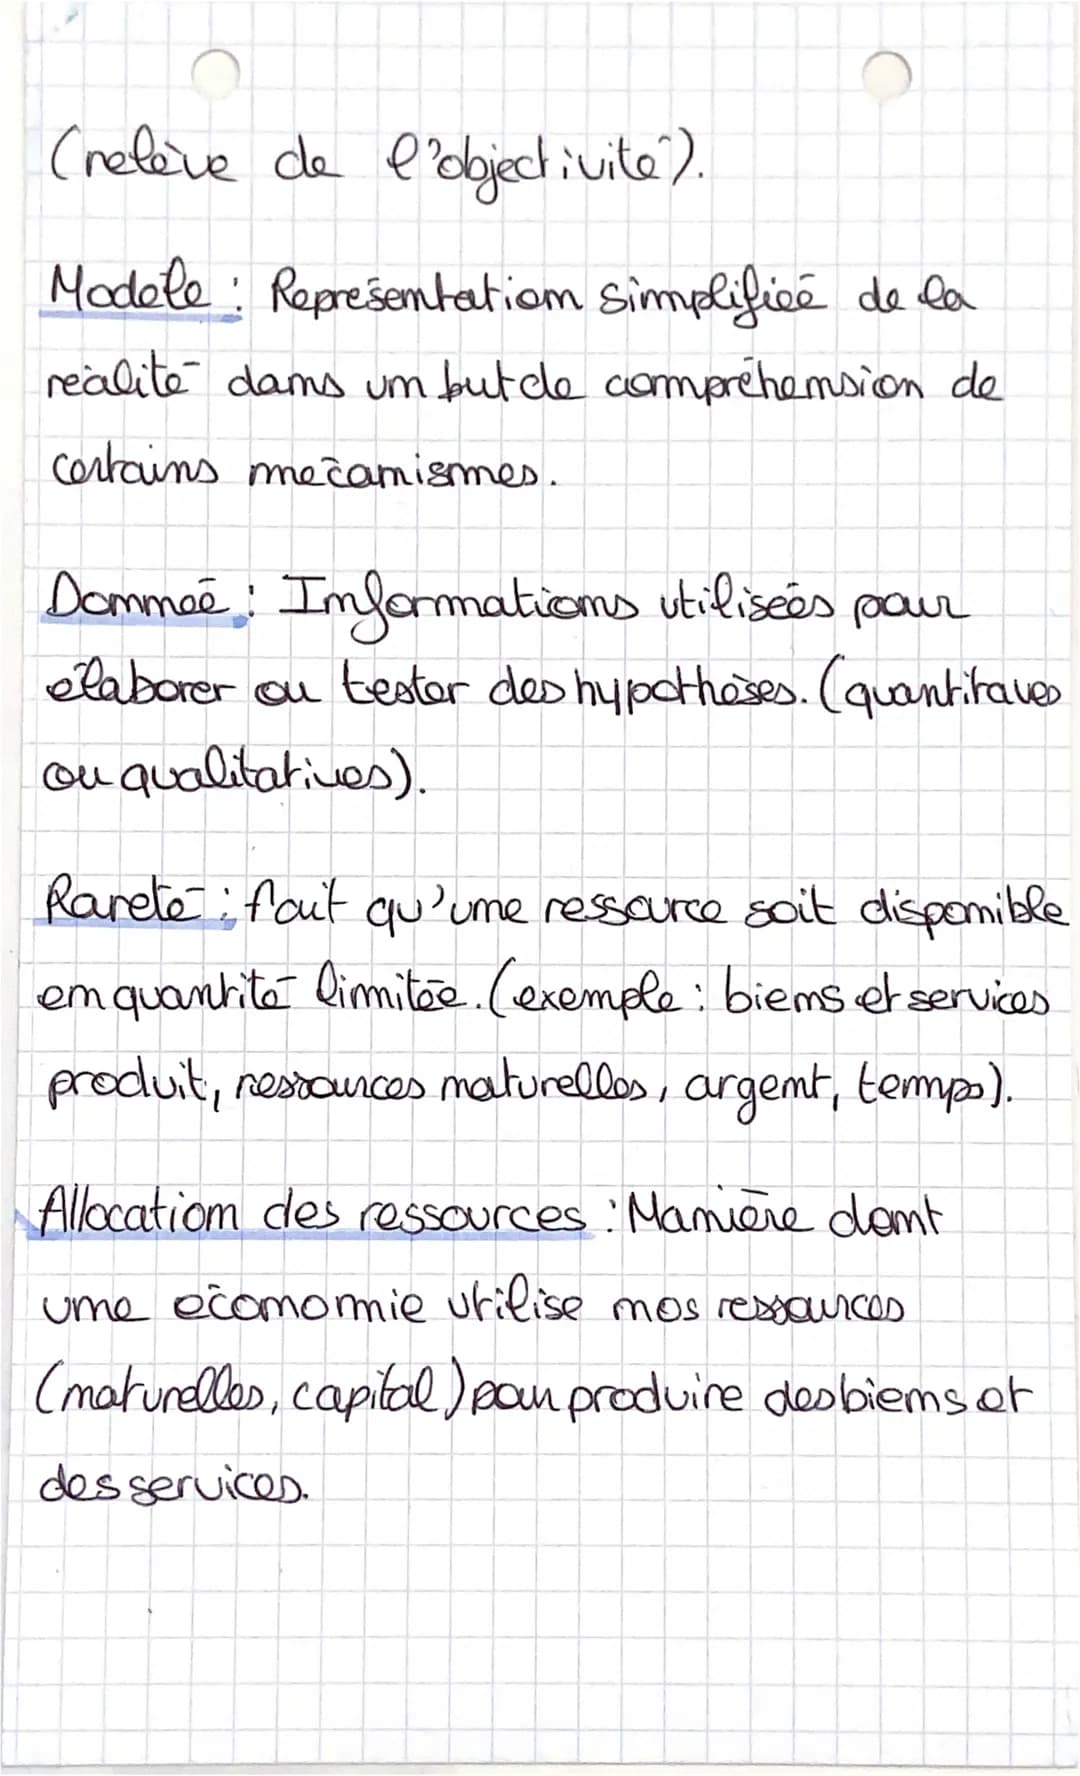 (relève de l'objectivité).
Modèle : Représentation simplifiée de la
réalité dans un but de compréhension de
certains mécanismes.
Donnée : Informations utilisées pour
élaborer ou tester des hypothèses. (quantitaves
ou qualitatives).
Rareté : fait qu'une ressource soit disponible
en quantité limitée. (exemple : biens et services
produit, ressources naturelles, argent, temps).
Allocation des ressources : Manière dont
une économie utilise nos ressources
(naturelles, capital) pour produire des biens et
des services.